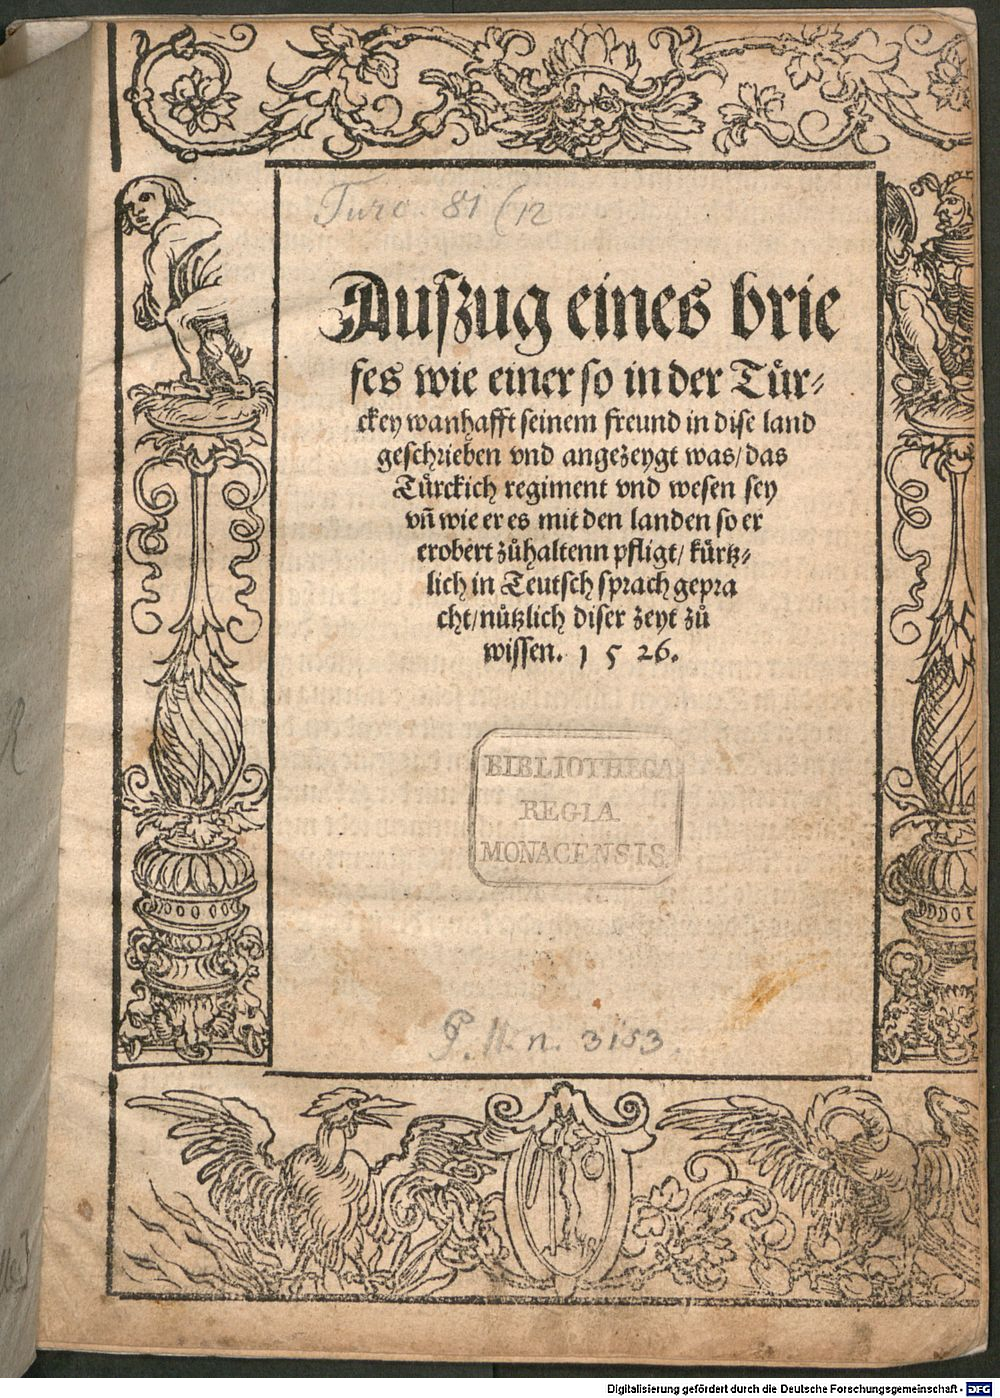 Turc. 81 (12
Auſzug eines brie
fes wie einer ſo in der Tür⸗
ckey wanhafft ſeinem freund in diſe land
geſchrieben vnd angezeygt was/ das
Türckich regiment vnd weſen ſey
vñ wie er es mit den landen ſo er
erobert zůhaltenn pfligt/ kürtz⸗
lich in Teutſch ſprach gepra
cht/ nützlich diſer zeyt zů
wiſſen. 1526.
BIBLIOTHECA
REGIA
MONACENSIS.
P. H. n. 3153.
Digitalisierung gefördert durch die Deutsche Forschungsgemeinschaft - DFG